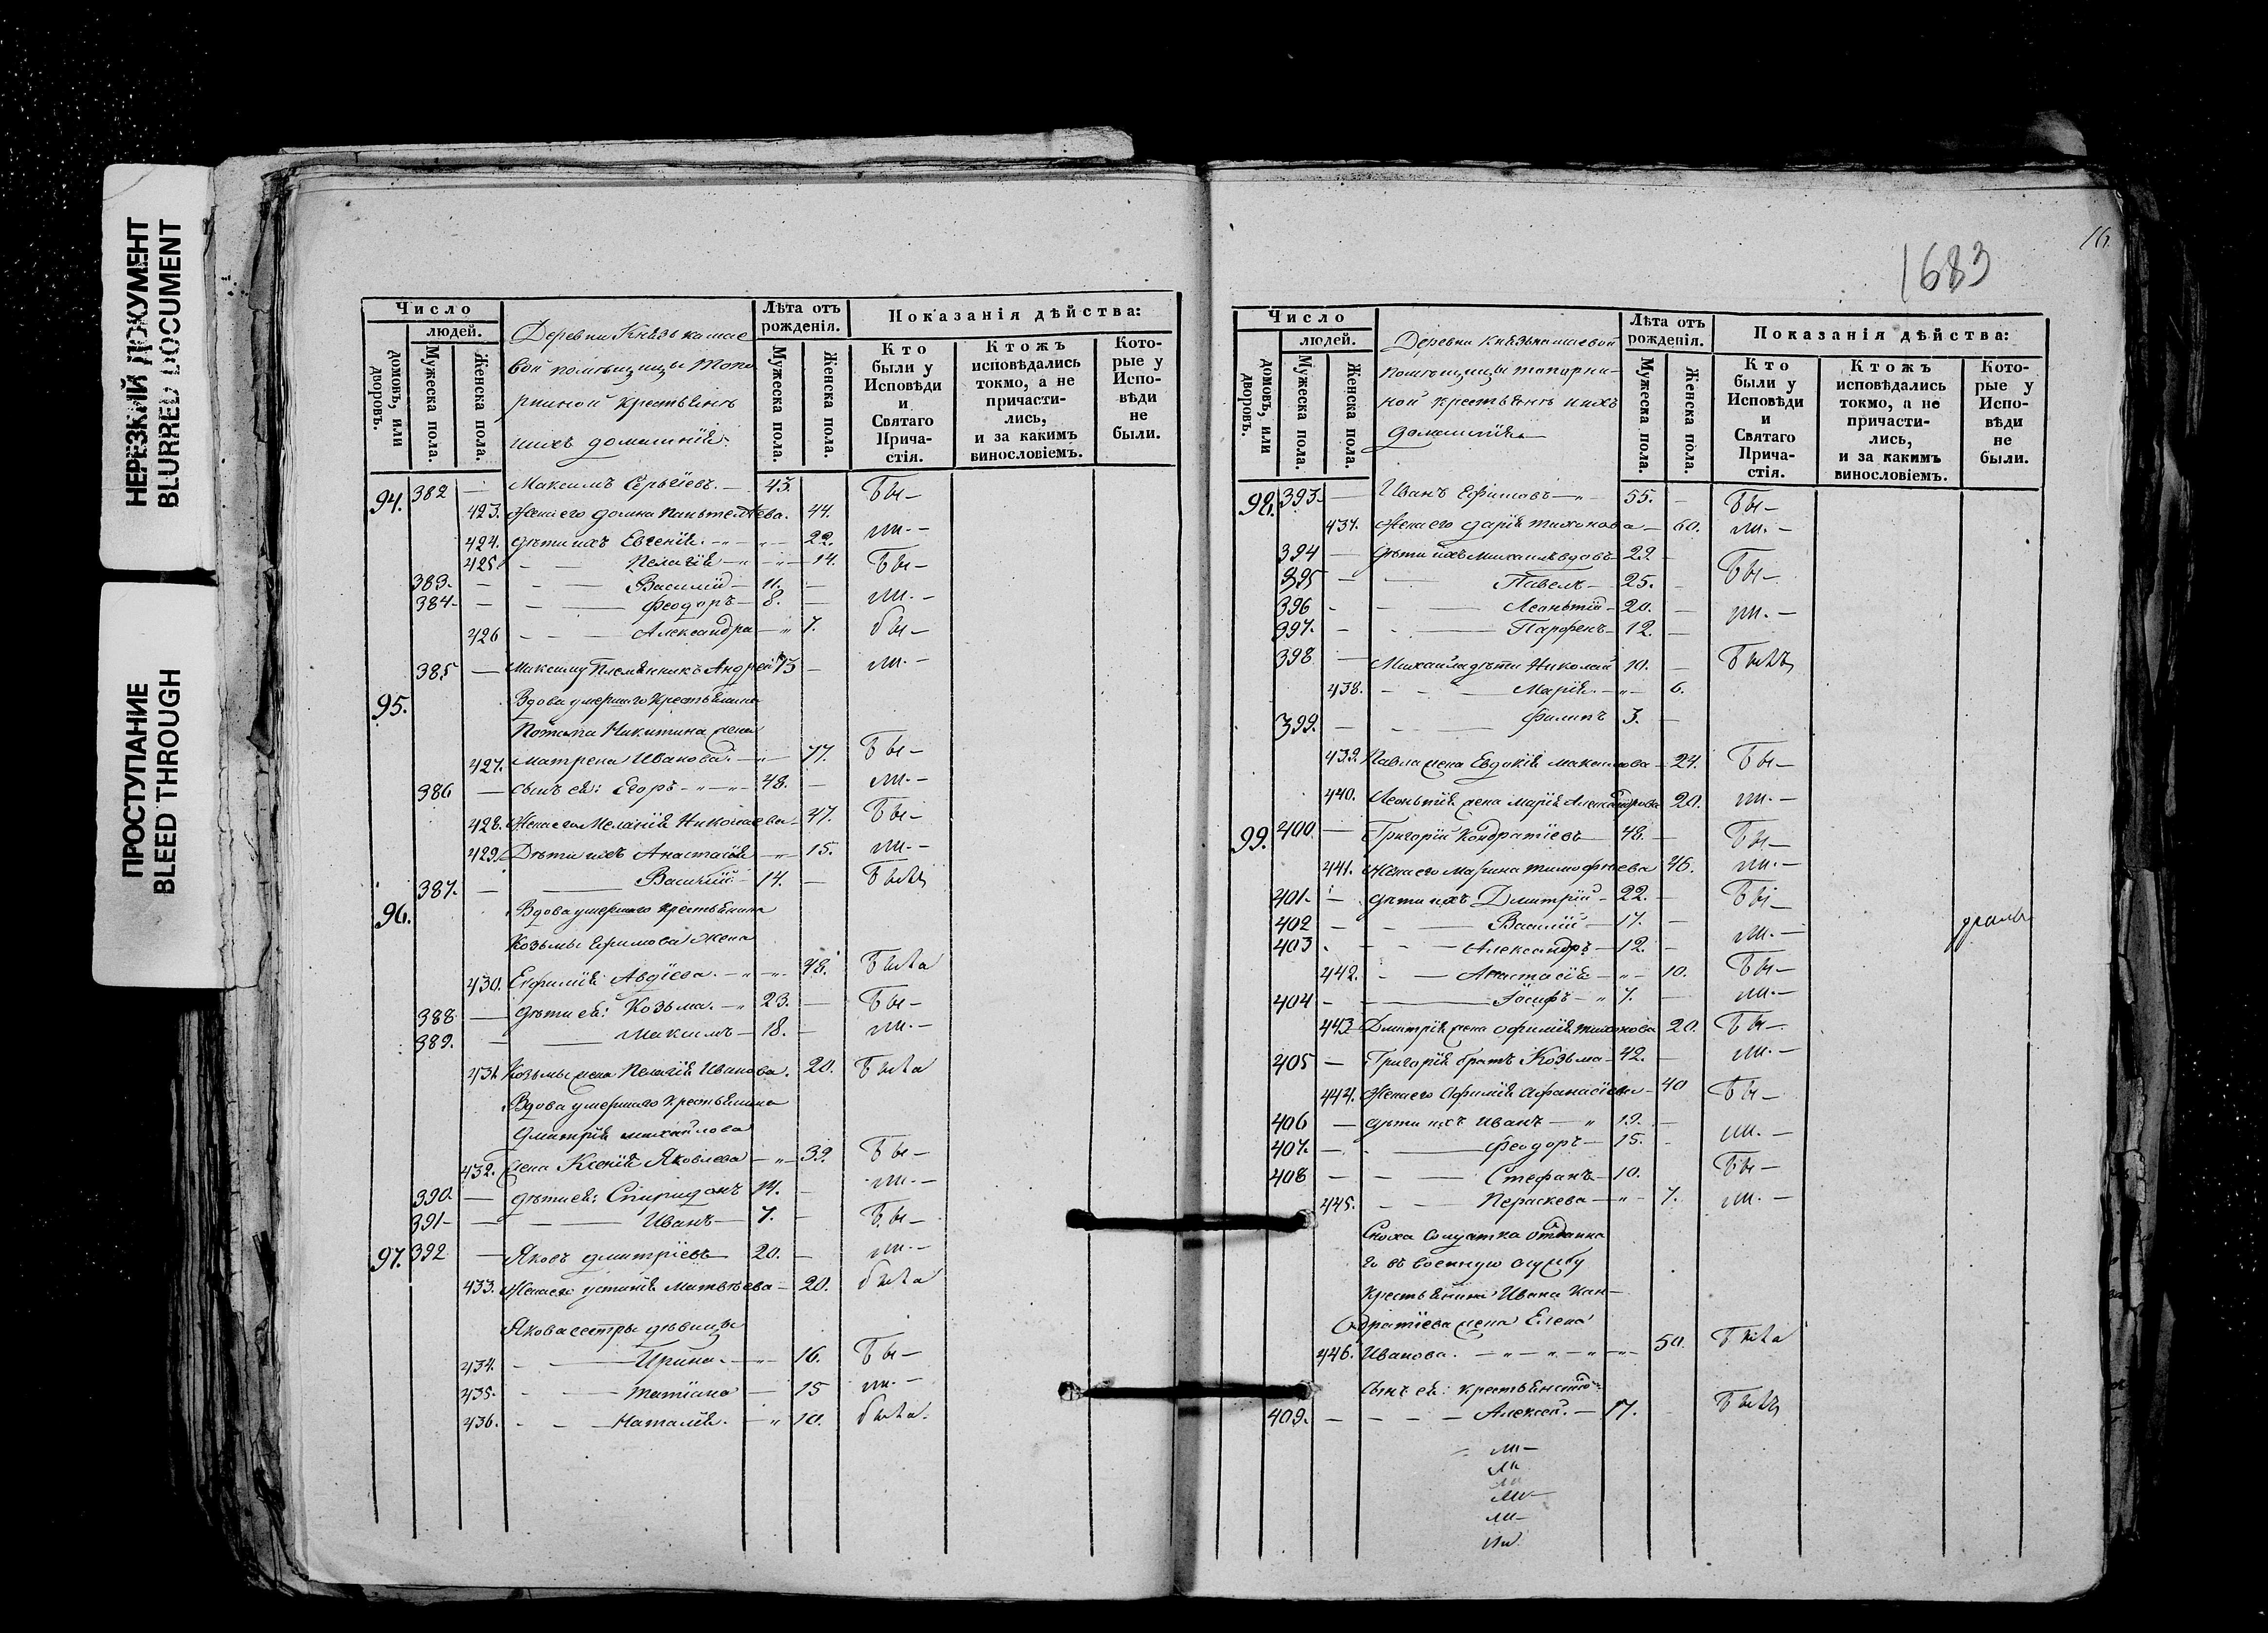 НЕРЕЗКИЙ ДОКУМЕНТ
BLURRED DOCUMENT
ПРОСТУПАНИЕ
BLEED THROUGH
Число
людей.
домовъ, или дворовъ.
Мужеска пола.
Женска пола.
Деревни Князь камае
вой помѣщицы Топо
рниной крестьянъ
ихъ домашнія.
Лѣта отъ рожденія.
Мужеска пола.
Женска пола.
Показанія дѣйства:
Кто были у Исповѣди и Святаго Прича-стія.
Ктожъ исповѣдались токмо, а не причасти-лись, и за какимъ винословіемъ.
Кото-рые у Испо-вѣди не были.
94. 382 — Максимъ Сергѣевъ. — 45. Бы—
423. Жена его Пантелѣева. 44. ли.—
424. дѣти ихъ Евгенія. 22.
425. Пелагія 14. Бы—
383. Василій 11.
384. Феодоръ 8. ли.—
426 Александра 7. бы—
385. Максиму Племянникъ Андрей ли.—
95. Вдова умершаго крестьянина
Потапа Никитина жена
427. Матрена Иванова. 77. Бы—
386 сынъ ея: Егоръ 48. ли.—
428. Жена его Меланія Николаева 47. Бы—
429. Дѣти ихъ Анастасія 15. ли.—
387. Василій 14. Былъ
96. Вдова умершаго крестьянина
Козьмы Ефимова жена
430. Евфимія Авдѣева. 48. Была
388. дѣти ея: Козьма. 23. Бы—
389. Максимъ 18. ли.—
431. Козьмы жена Пелагія Иванова. 20. Была
Вдова умершаго крестьянина
Дмитрія Михайлова
432. жена Ксенія Яковлева 39. Бы—
390. дѣти ея: Спиридонъ 14. ли.—
391 Иванъ 7. Бы—
97. 392 Яковъ Дмитріевъ 20. ли.—
433. Жена его Устинія Матвѣева 20. была
Якова сестры дѣвицы
434. Ирина. 16. Бы—
435. Татіана 15 ли.—
436. Наталія. 10. была.
16.
1683
Число
людей.
домовъ, или дворовъ.
Мужеска пола.
Женска пола.
Деревни Князькамаевой
помѣщицы Топорни-
ной крестьянъ ихъ
домашнія
Лѣта отъ рожденія.
Мужеска пола.
Женска пола.
Показанія дѣйства:
Кто были у Исповѣди и Святаго Прича-стія.
Ктожъ исповѣдались токмо, а не причасти-лись, и за какимъ винословіемъ.
Кото-рые у Испо-вѣди не были.
98. 393. Иванъ Ефимовъ 55. Бы—
437. Жена его Дарія Тихонова 60. ли.—
394 дѣти ихъ Михаилъ вдовъ 29.
395 Павелъ 25. Бы—
396 Леонтій 20.
397. Парфенъ 12. ли.—
398 Михаила дѣти Николай 10. Былъ
438. Марія 6.
399. Филипъ 3.
439. Павла жена Евдокія Максимова 24. Бы—
440. Леонтія жена Марія Александрова 20. ли.—
99. 400. Григорій Кондратіевъ 48. Бы—
441. Жена его Марина Тимофѣева 46. ли.—
401. дѣти ихъ Дмитрій 22. Бы—
402 Василій 17.
403 Александръ 12. ли.—
442. Анастасія 10. Бы—
404 Іосифъ 7. ли.—
443 Дмитрія жена Офимія Тихонова 20. Бы—
405 Григорія братъ Козьма 42. ли.—
444. Жена его Афимія Афанасіева 40 Бы—
406 дѣти ихъ Иванъ 19.
407. Феодоръ 15. ли.—
408 Стефанъ 10. Бы—
445. Пераскева 7. ли.—
Сноха Солдатка отданна
го въ военную службу
крестьянина Ивана Кан-
дратіева жена Елена
446. Иванова. 50. Была
сынъ ея:
409. Алексей. 17. Былъ
ли—
ли
ли
ли—
ли—
ли